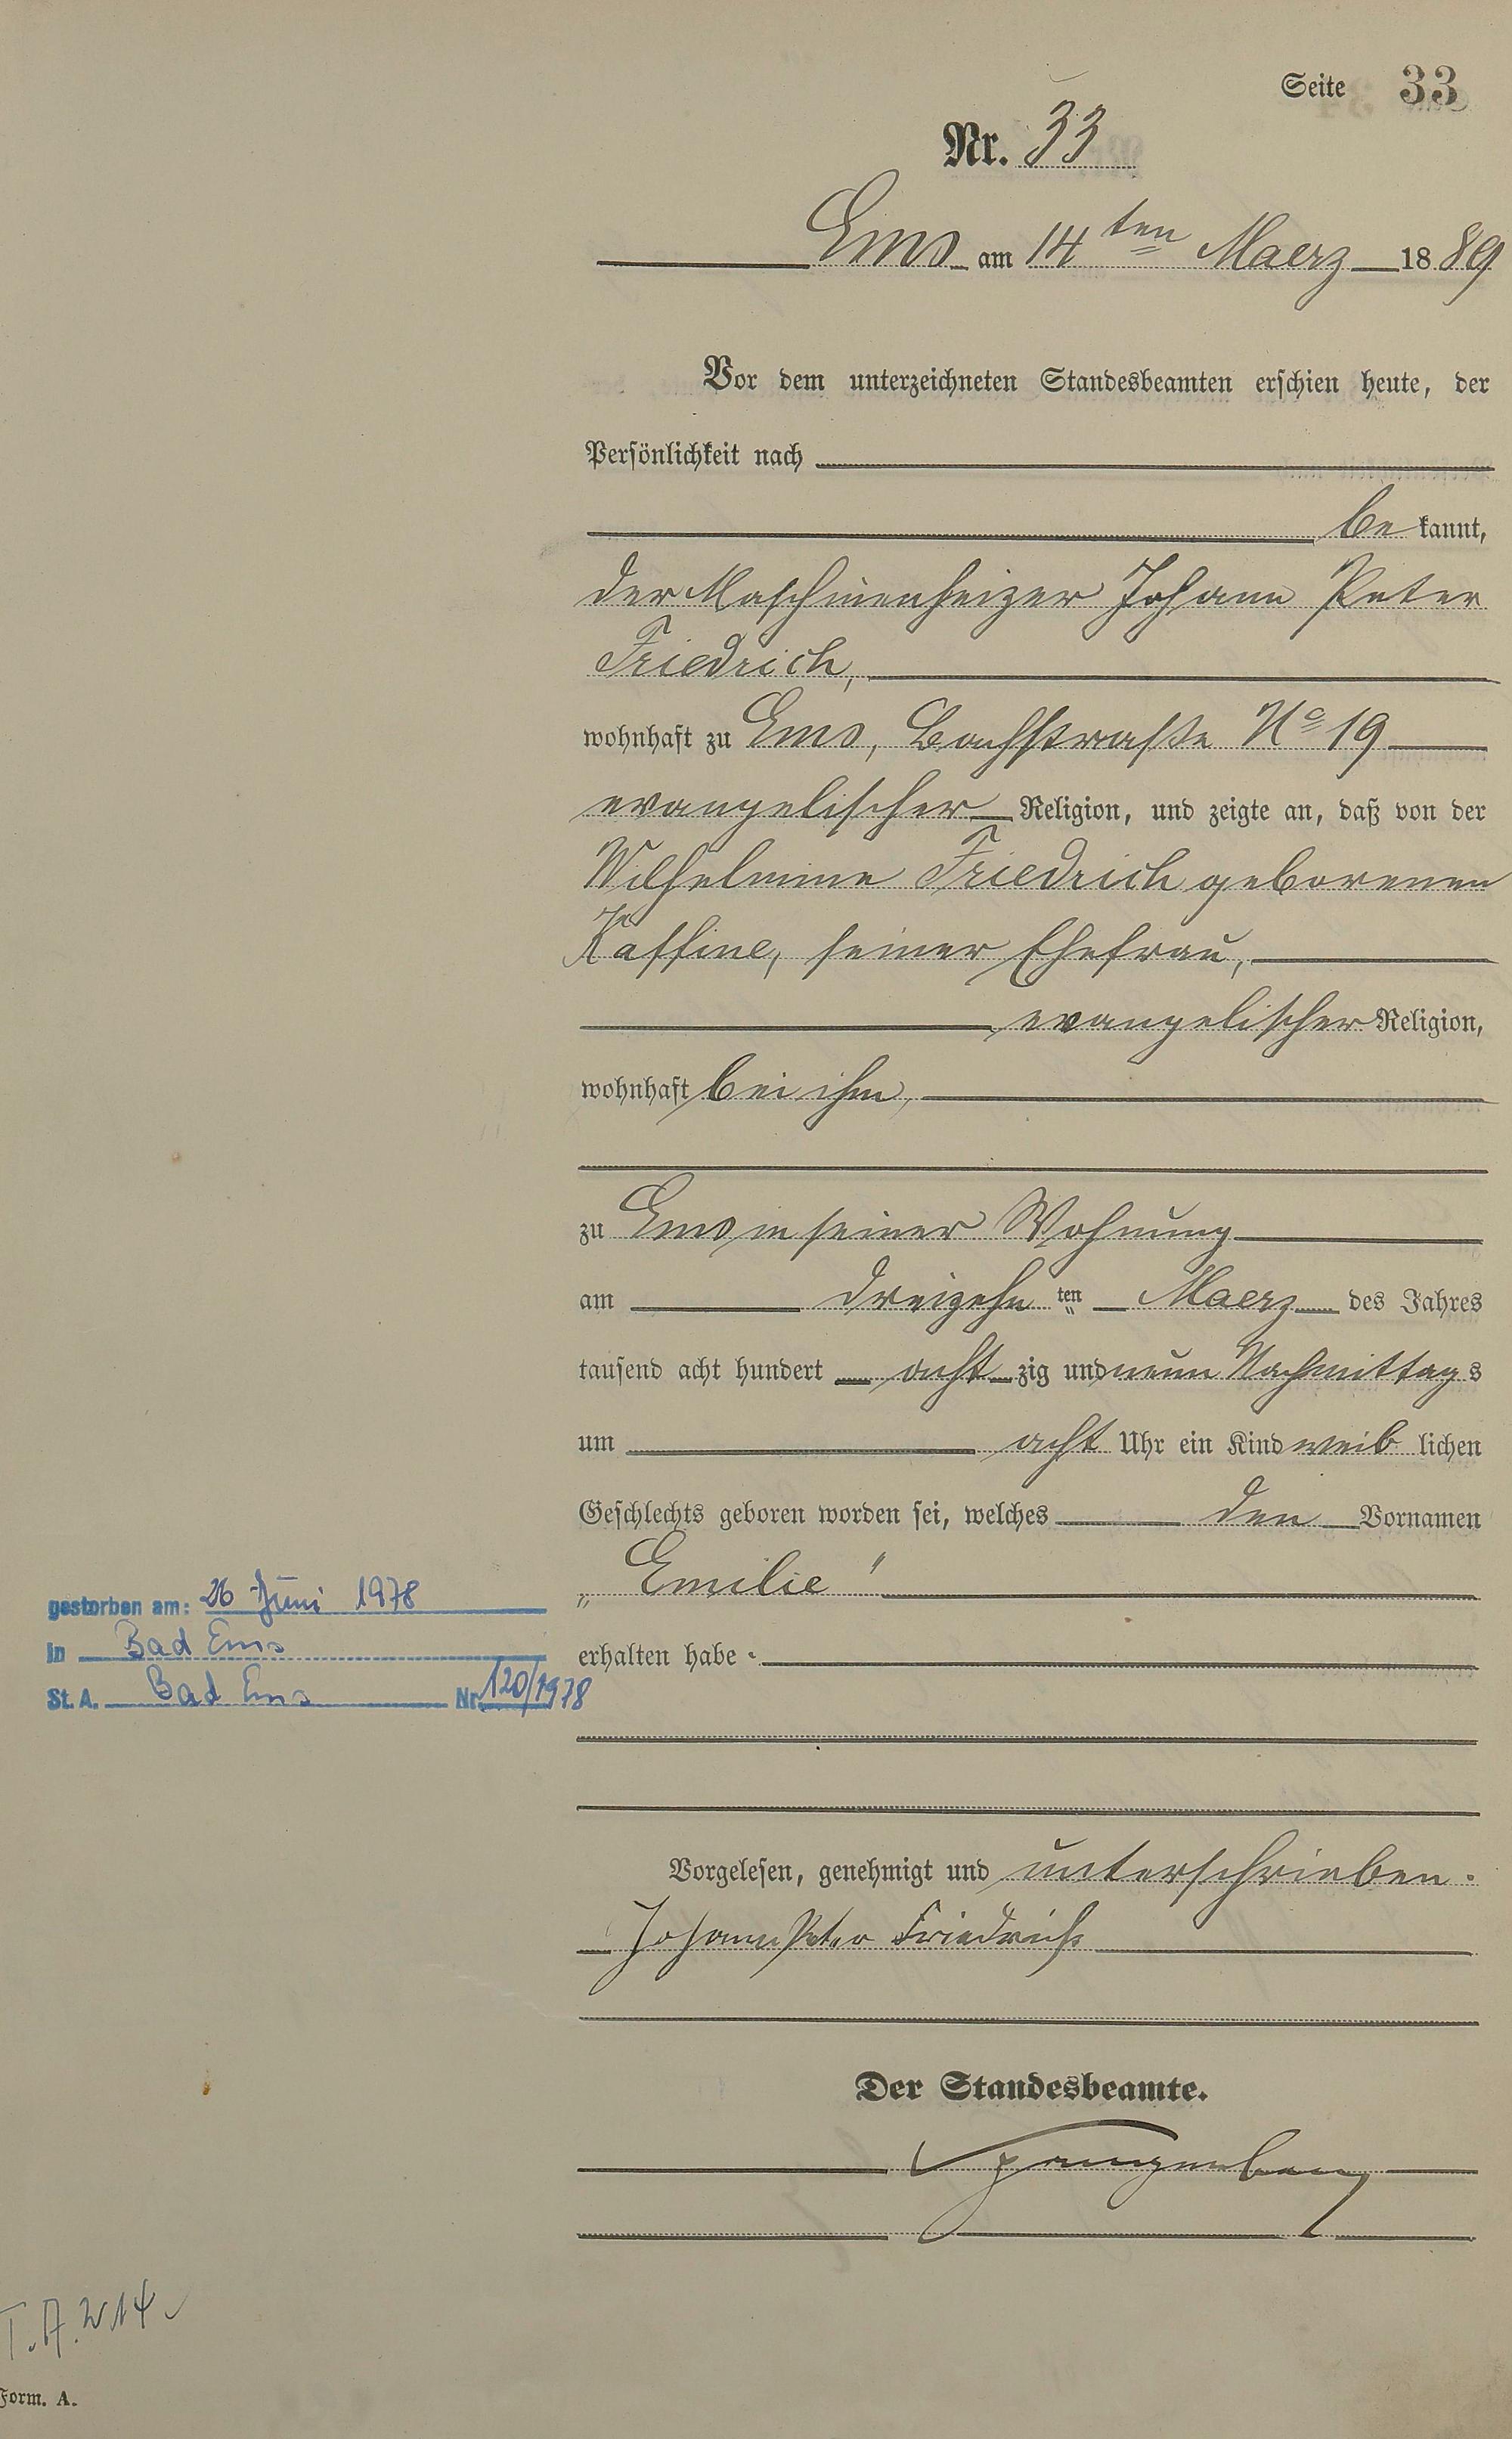 Seite 33
Nr. 33
Ems am 14ten Maerz 1889
Vor dem unterzeichneten Standesbeamten erschien heute, der
Persönlichkeit nach
bekannt,
der Maschinenheizer Johann Peter
Friedrich,
wohnhaft zu Ems, Bachstraße No 19
evangelischer Religion, und zeigte an, daß von der
Wilhelmine Friedrich geborenen
Kaffine, seiner Ehefrau,
evangelischer Religion,
wohnhaft bei ihm,
zu Ems in seiner Wohnung
am dreizehnten Maerz des Jahres
tausend acht hundert achtzig und neun Nachmittags
um acht Uhr ein Kind weiblichen
Geschlechts geboren worden sei, welches den Vornamen
„Emilie"
gestorben am: 26 Juni 1978
in Bad Ems
erhalten habe.
St. A. Bad Ems Nr. 120/1978
Vorgelesen, genehmigt und unterschrieben.
Johann Peter Friedrich
Der Standesbeamte.
T. A. W 14
Form. A.